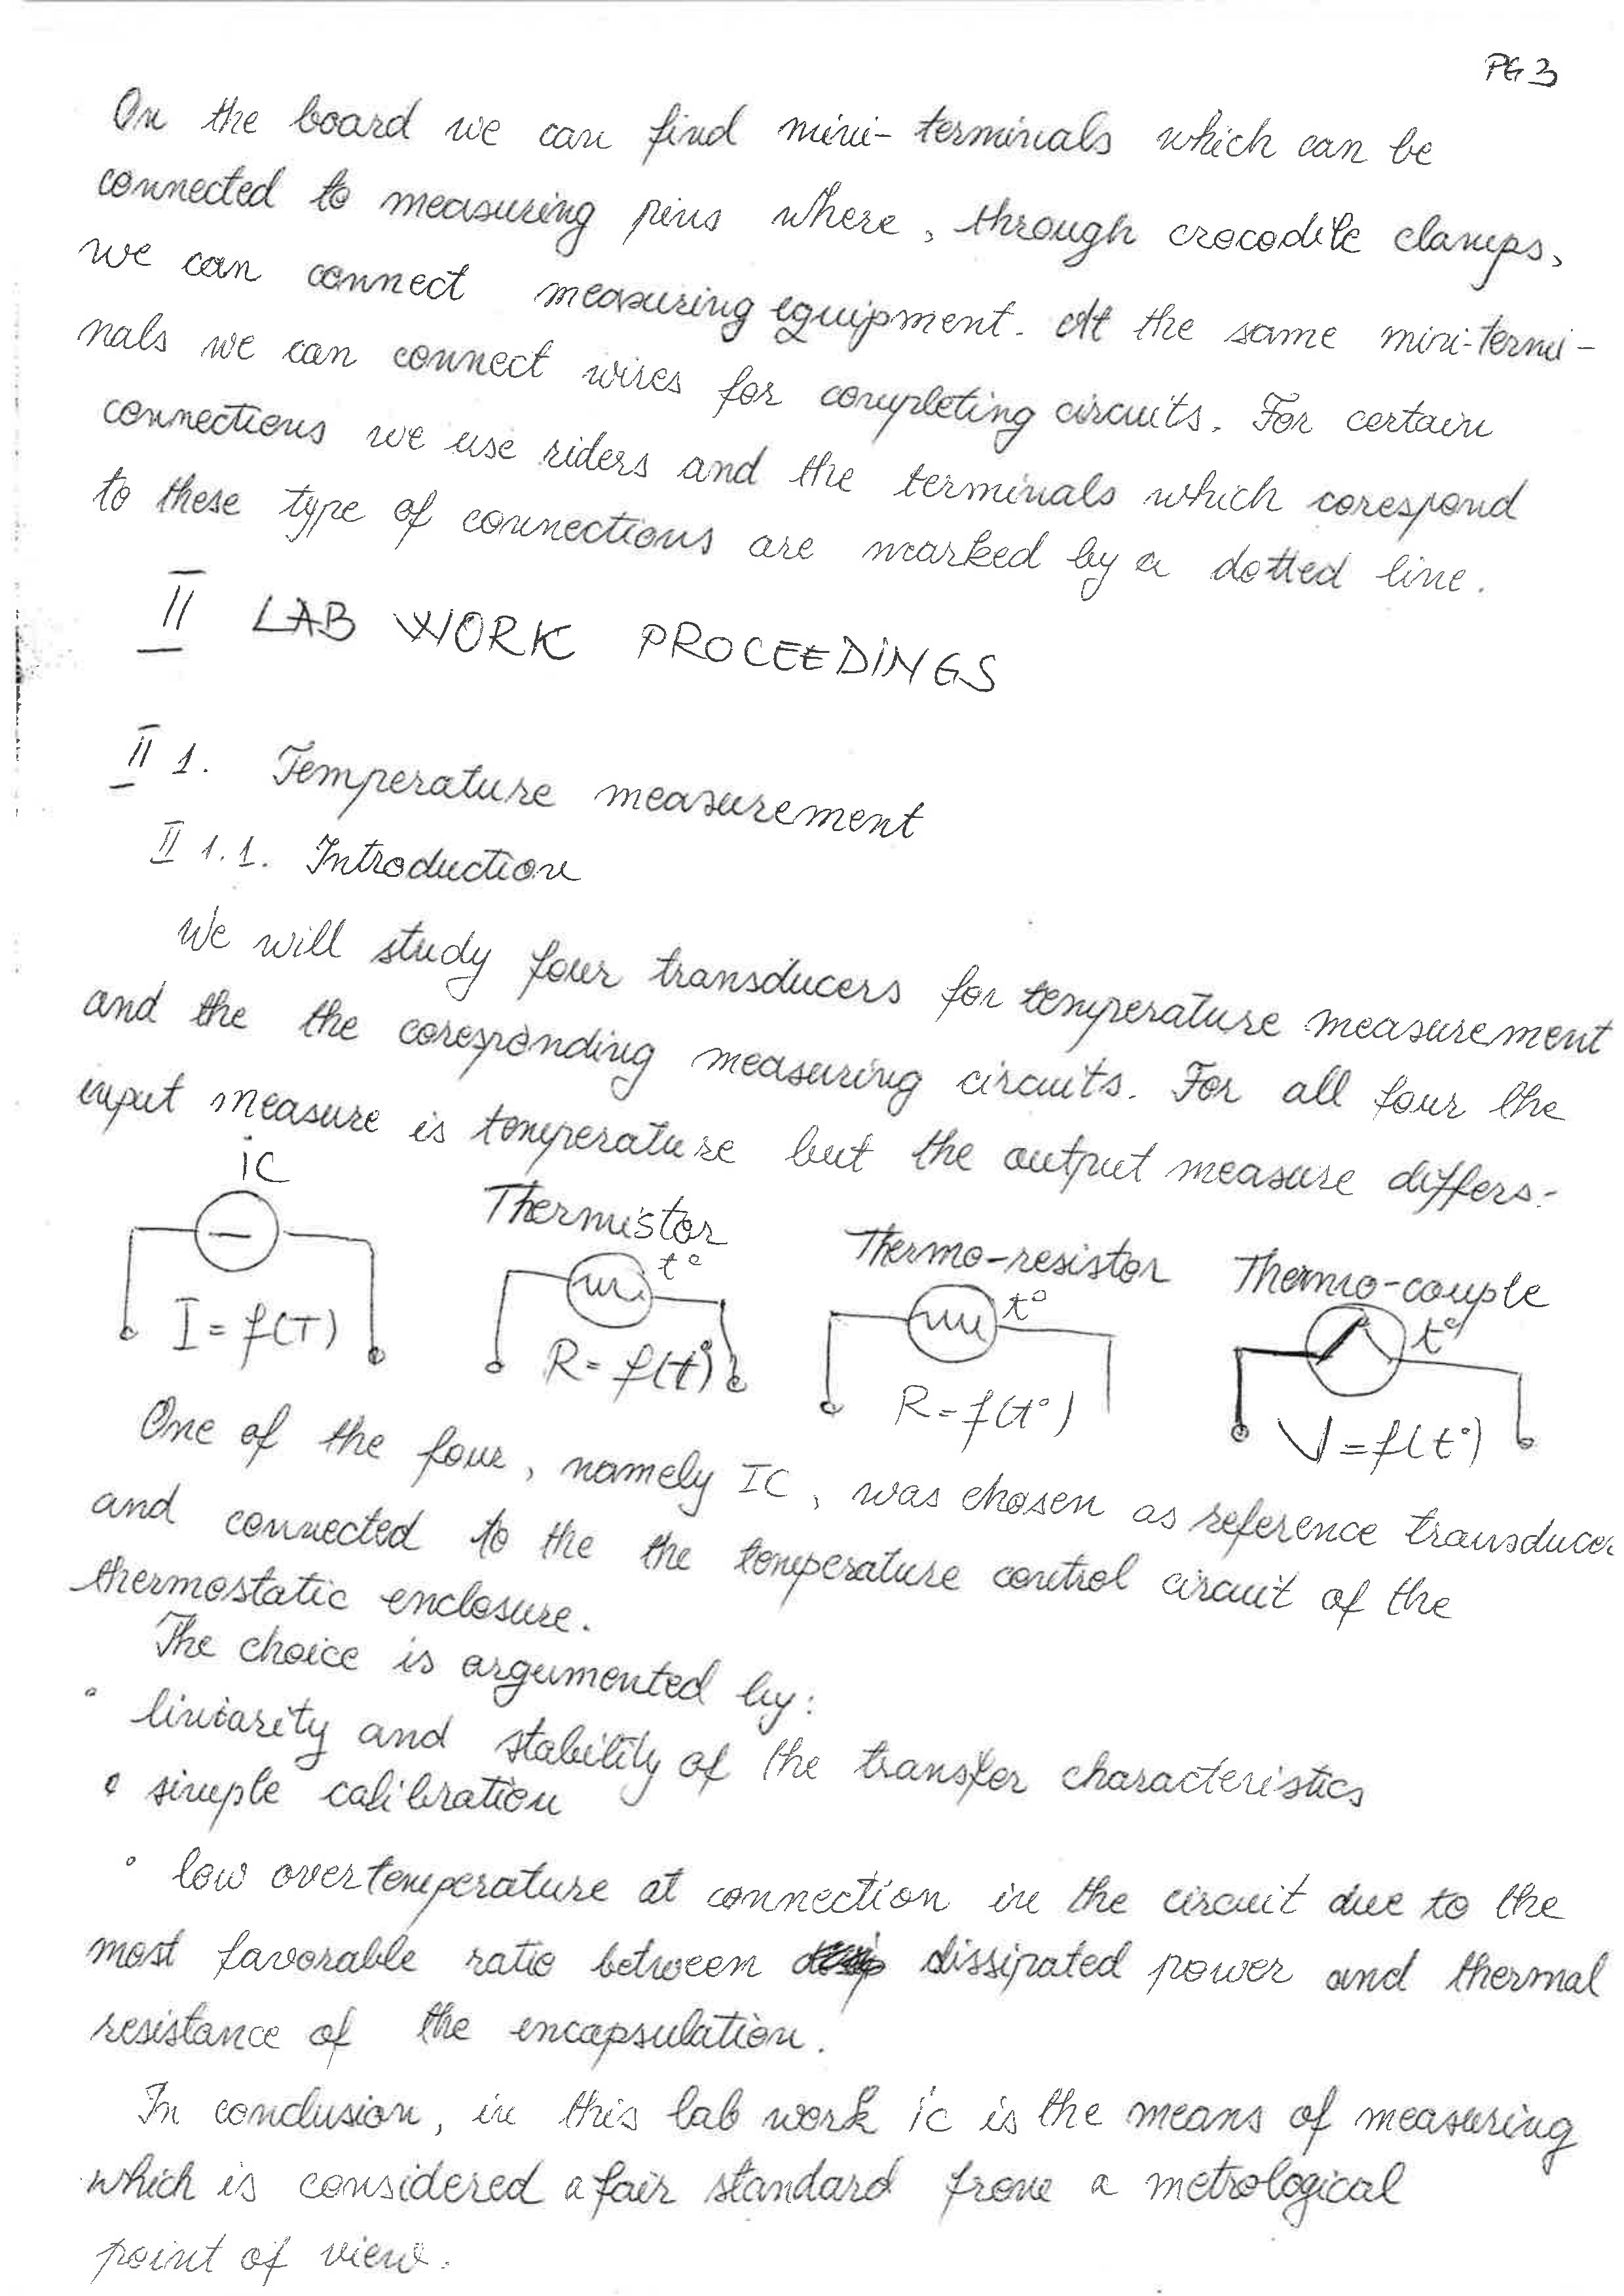 PG 3
On the board we can find mini-terminals which can be
connected to measuring pins where, through crocodile clamps,
we can connect measuring equipment. At the same mini-termi-
nals we can connect wires for completing circuits. For certain
connections we use riders and the terminals which corespond
to these type of connections are marked by a dotted line.
II LAB WORK PROCEEDINGS
II 1. Temperature measurement
II 1.1. Introduction
We will study four transducers for temperature measurement
and the the coresponding measuring circuits. For all four the
input measure is temperature but the output measure differs.
iC
Thermistor
Thermo-resistor
Thermo-couple
t°
t°
t°
I = f(T)
R = f(t°)
R = f(t°)
V = f(t°)
One of the four, namely IC, was chosen as reference transducer
and connected to the the temperature control circuit of the
thermostatic enclosure.
The choice is argumented by:
° liniarity and stability of the transfer characteristics
° simple calibration
° low overtemperature at connection in the circuit due to the
most favorable ratio between dissipated power and thermal
resistance of the encapsulation.
In conclusion, in this lab work ic is the means of measuring
which is considered a fair standard from a metrological
point of view.